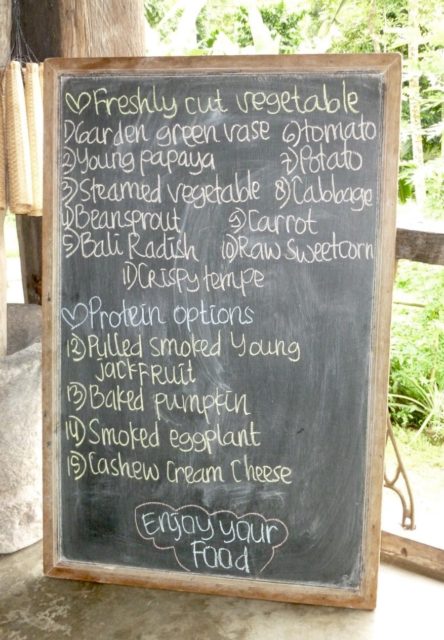 ♡Freshly cut vegetable
1)Garden green vase 6)tomato
2)Young papaya 7)Potato
3)Steamed vegetable 8)Cabbage
4)Beansprout 9)Carrot
5)Bali Radish 10)Raw Sweetcorn
11)Crispy tempe
♡Protein options
12)Pulled smoked Young
jackfruit
13)Baked pumpkin
14)Smoked eggplant
15)Cashew Cream Cheese
Enjoy your
Food